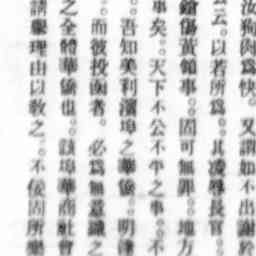 汝狗肉爲快。又謂如不出謝於
云。以若所爲。其凌辱長官。
鎗傷黃領事。固可無罪。地方
事矣。天下不公不平之事。不
。吾知美利濱埠之華僑。明達
。而彼投函者。必爲無意識之
之全體華僑也。該埠華商社會
請舉理由以敎之。不佞固所樂